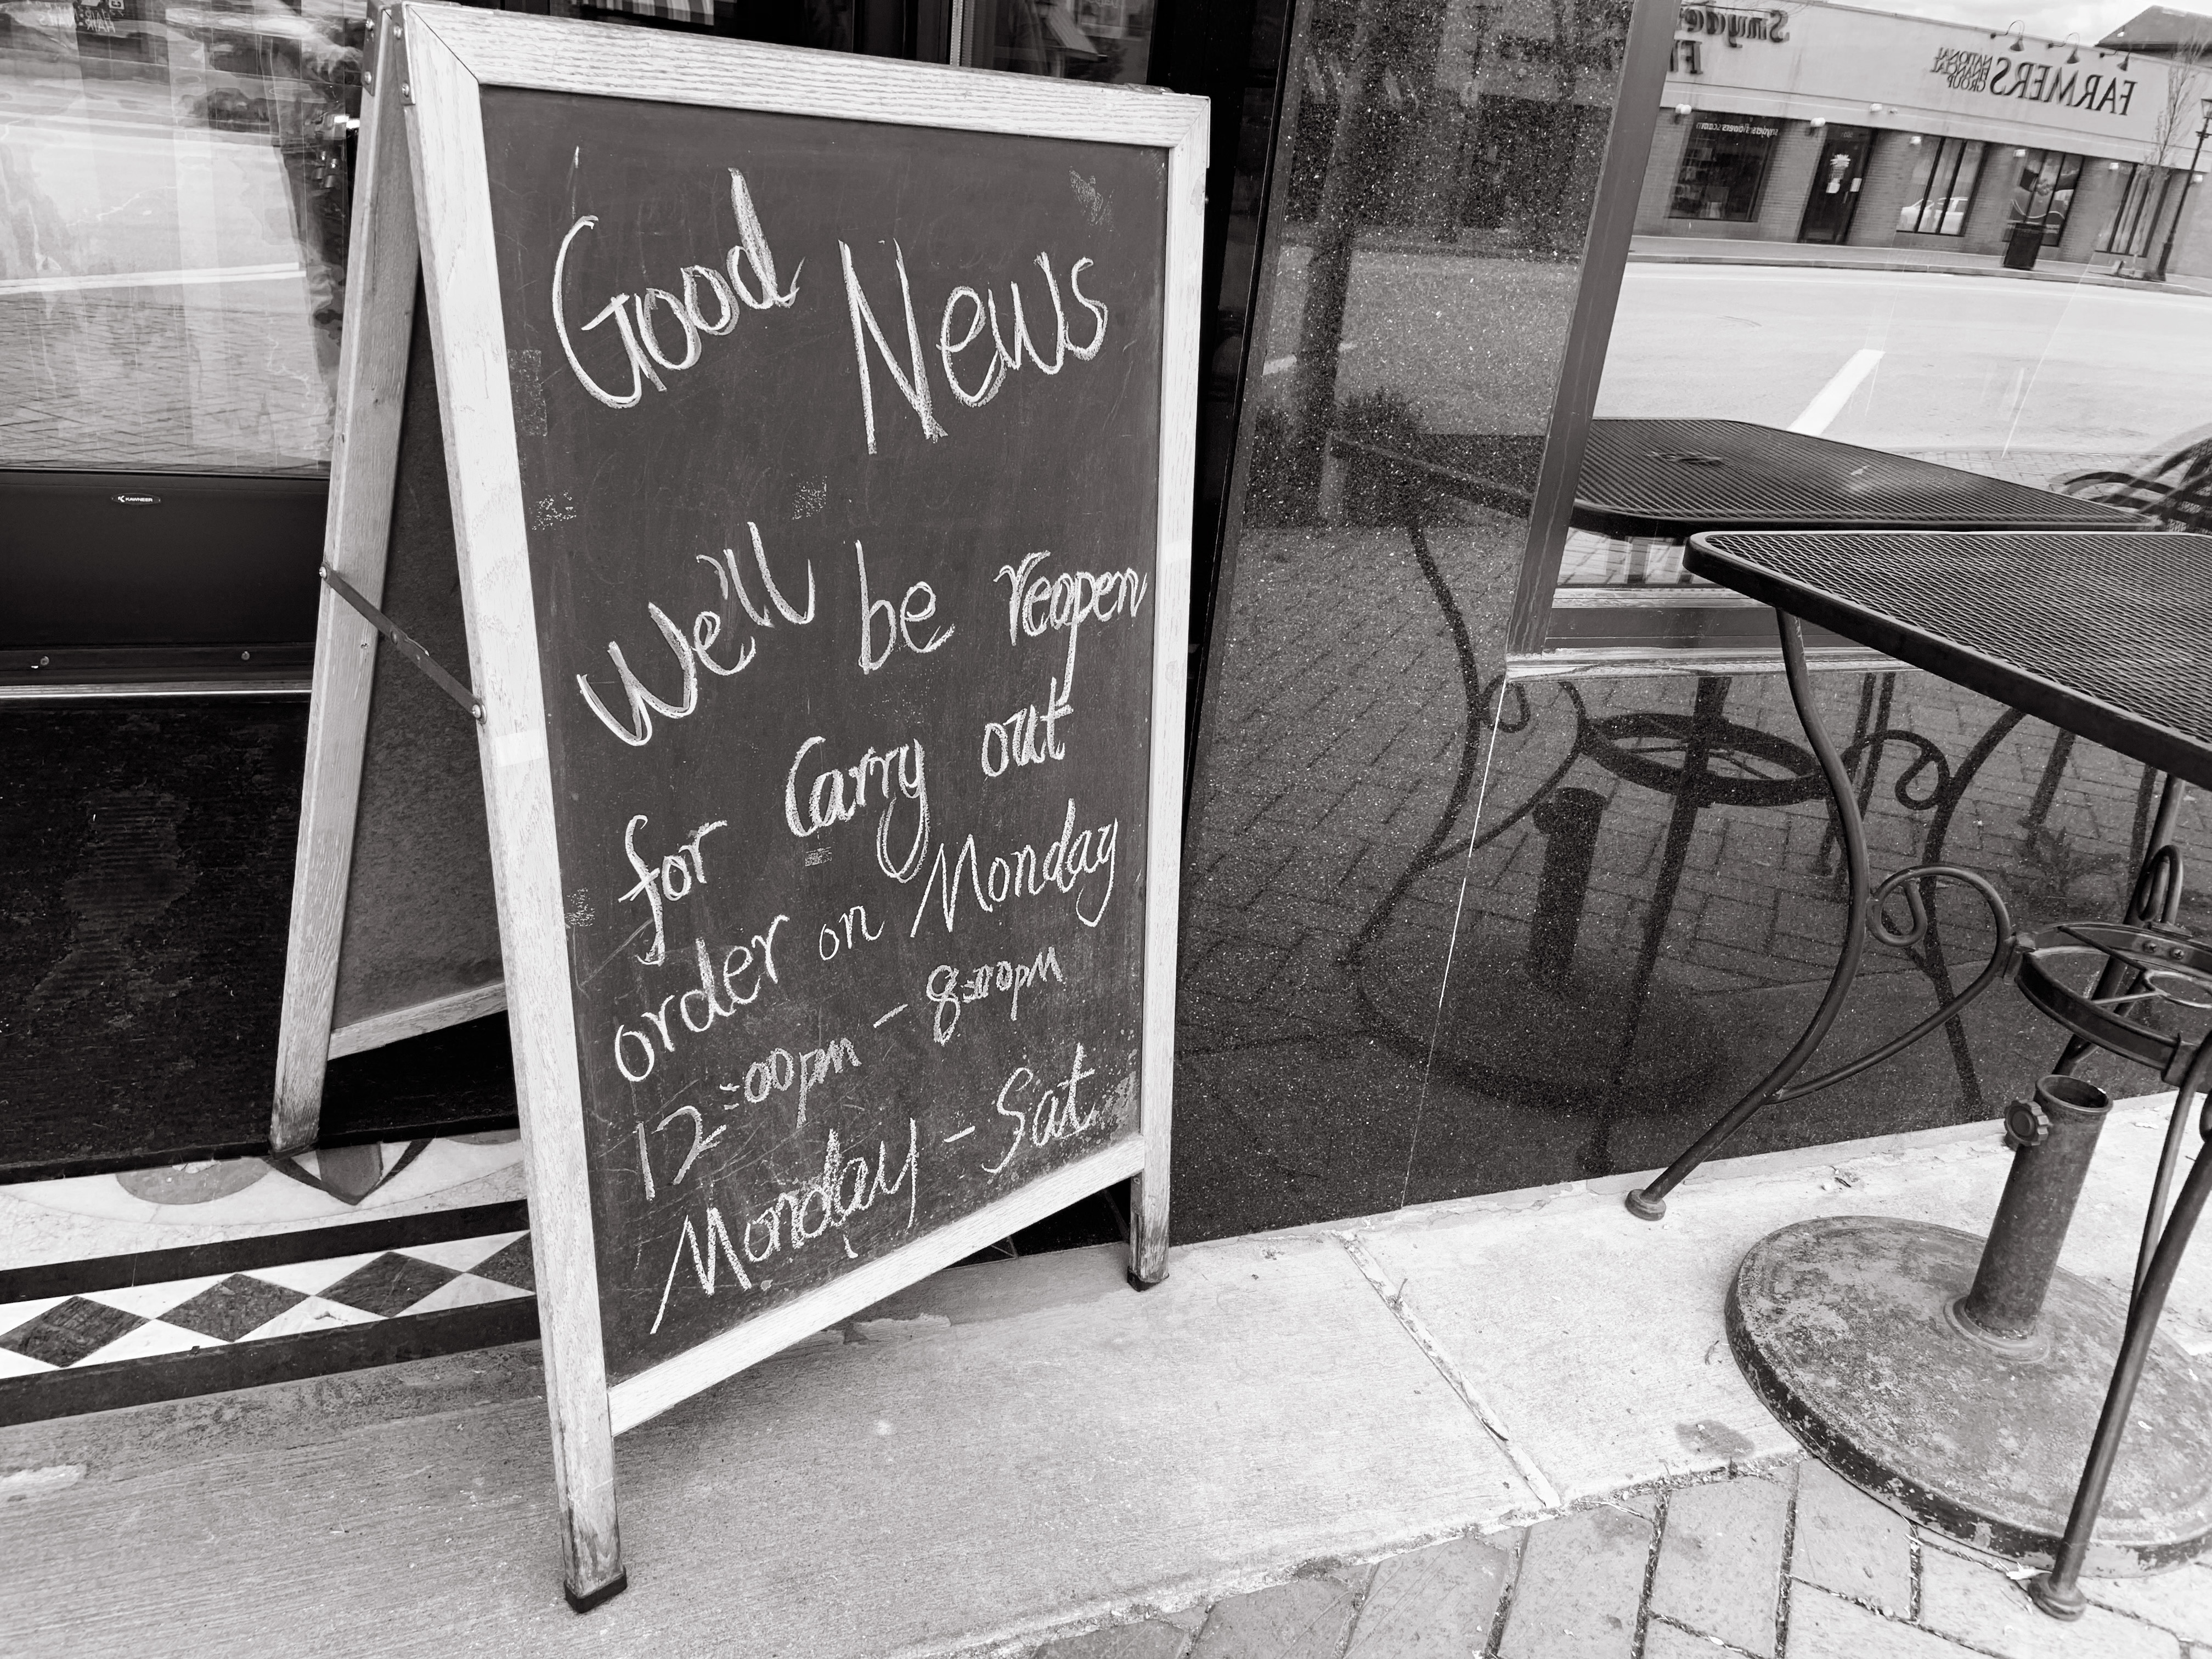 Good News
We'll be reopen
for Carry out
order on Monday
12:00pm - 8:00pm
Monday - Sat.
KAWNEER
Snyde
Fl
FARMERS
NATIONAL
BANC
GROUP
snydersflowers.com
HAIR